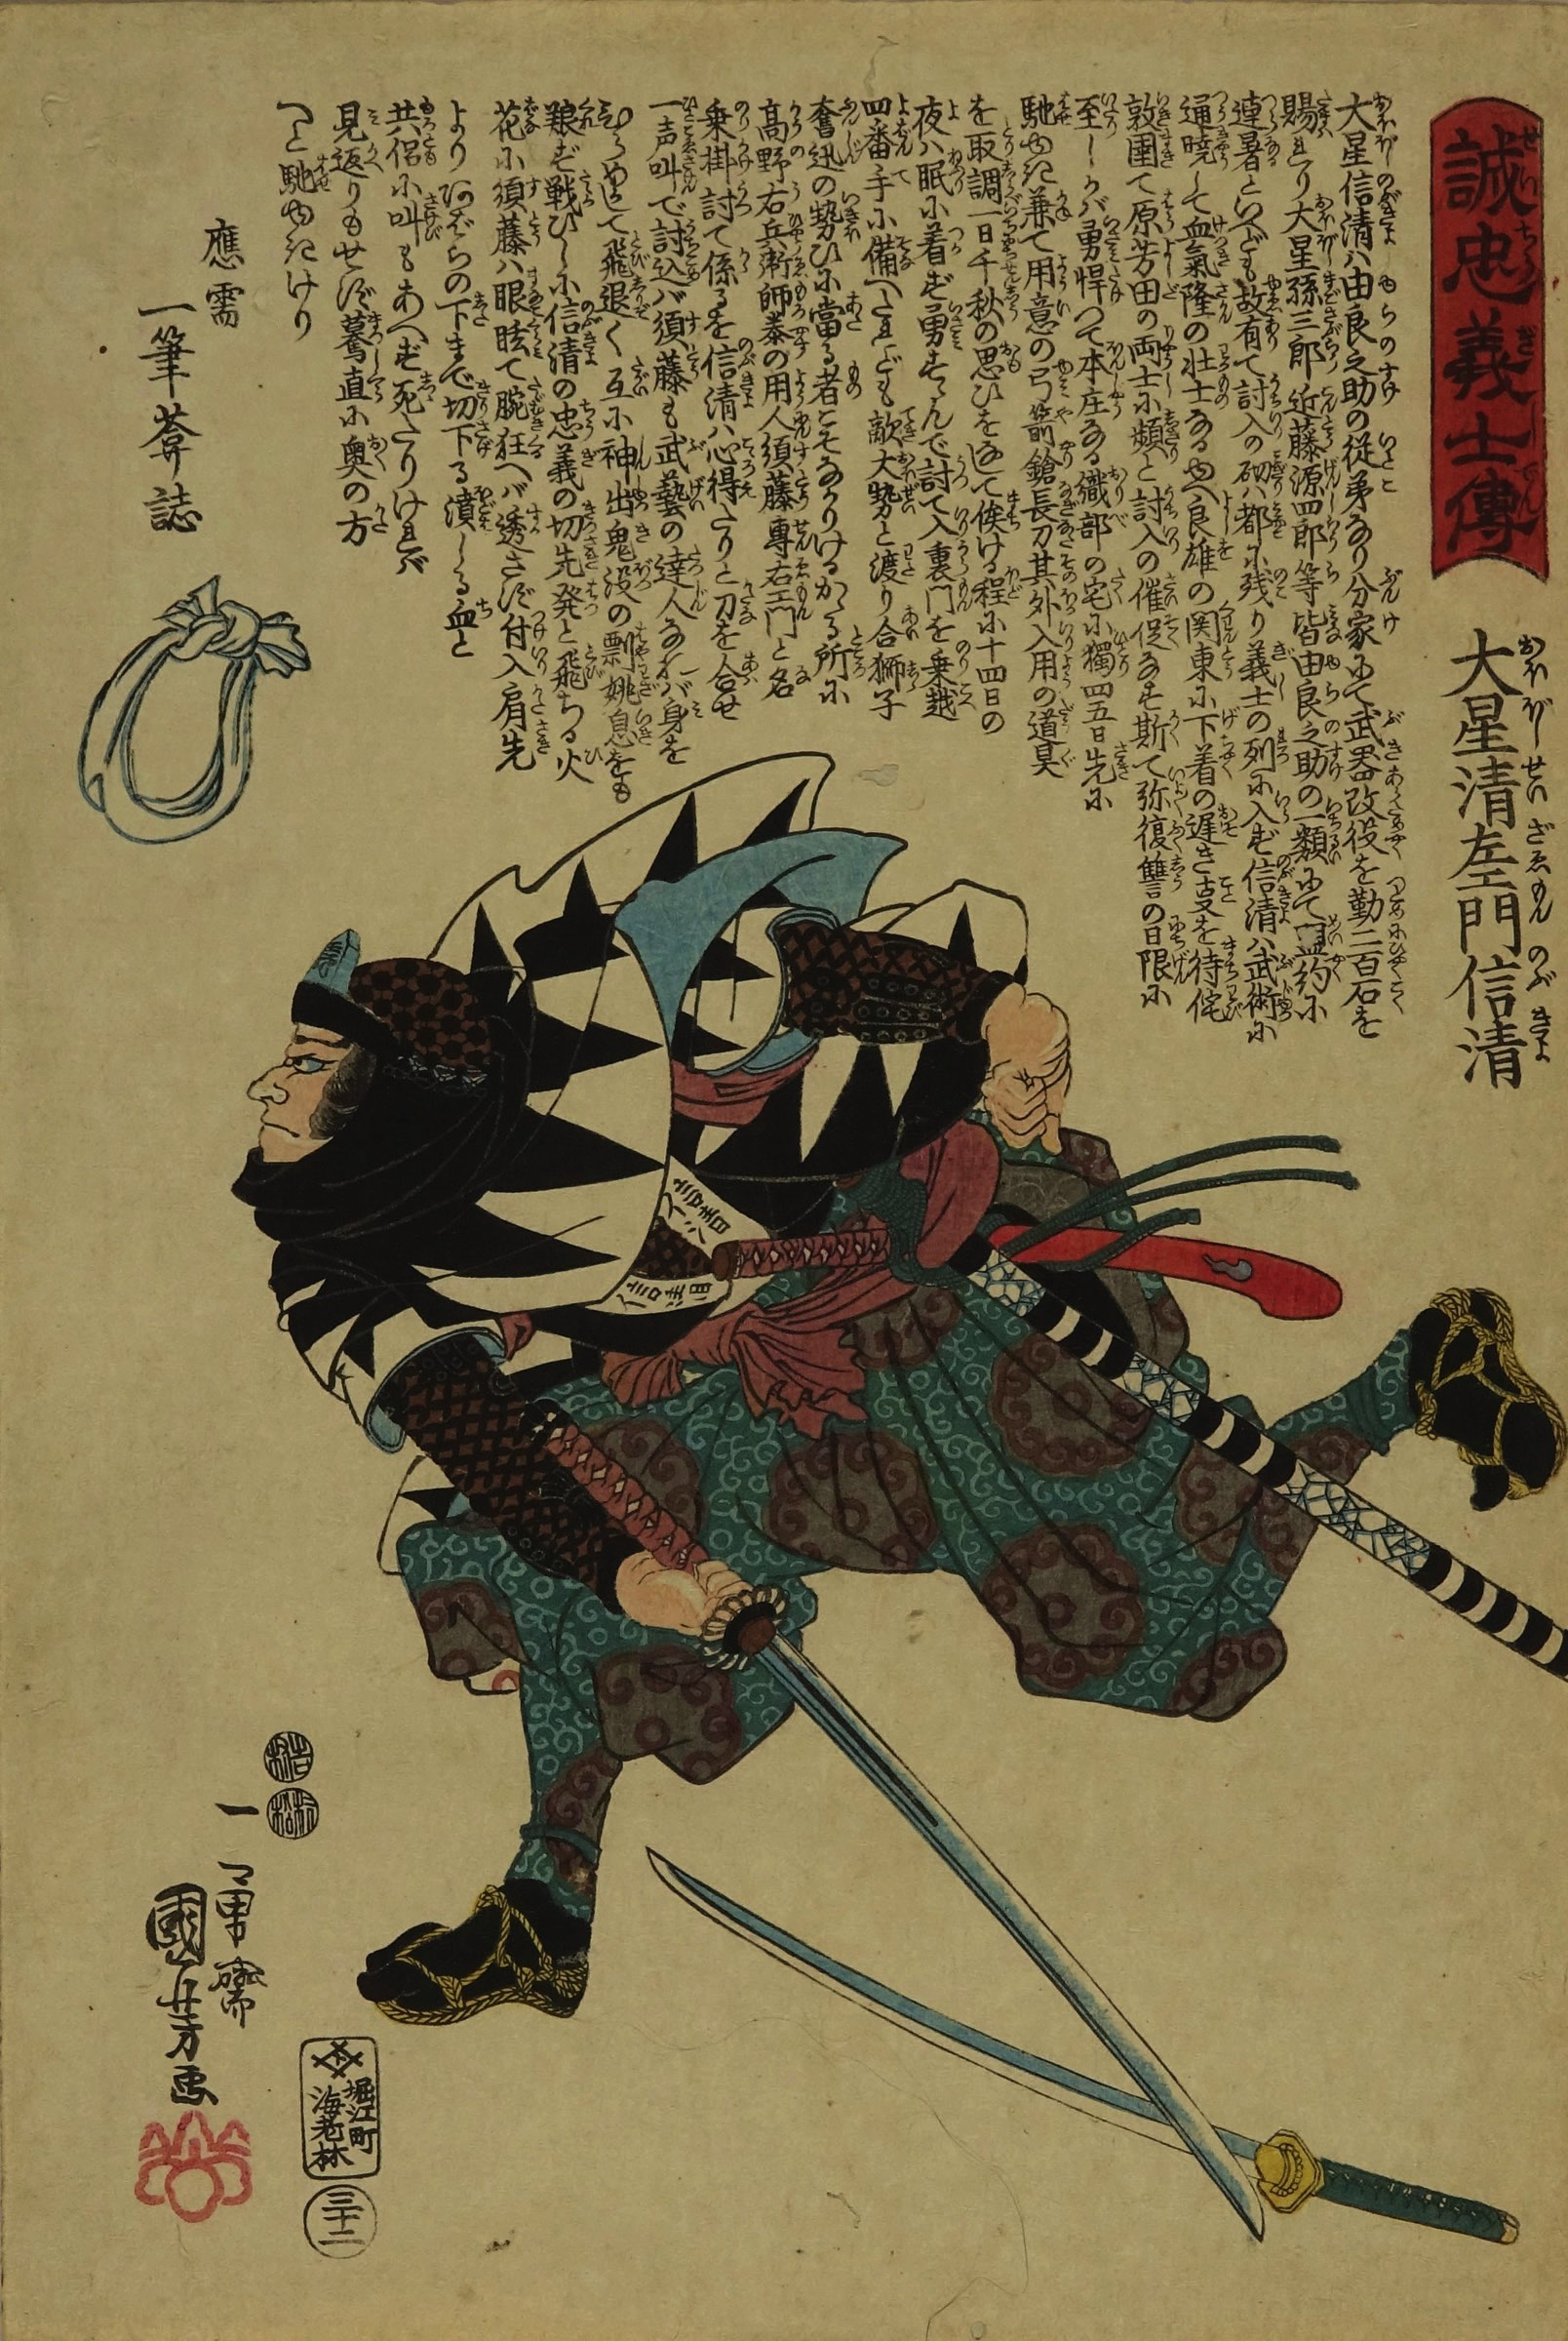 誠忠義士傳
大星清左エ門信清
大星信清ハ由良之助の従弟なり分家にて武器改役を勤二百石を
賜れり大星孫三郎近藤源四郎等皆由良之助の一類にて盟約に
連署といへども故有て討入の砌ハ都に残り義士の列に入ず信清ハ武術に
通暁して血氣隆の壮士なるゆへ良雄の関東に下着の遅き事を待侘
敦圉て原芳田の両士に頻と討入の催促なす斯て弥復讐の日限に
至しかバ勇悍つて本庄なる織部の宅に獨四五日先に
馳ゆき兼て用意の弓箭鎗長刀其外入用の道具
を取調一日千秋の思ひをなして俟ける程に十四日の
夜ハ眠に着ず勇すゝんで討て入裏門を乗越
四番手に備へたれども敵大勢と渡り合獅子
奮迅の勢ひに當る者こそなかりけるかゝる所に
高野右兵衛師泰の用人須藤專右エ門と名
乗掛討て係るを信清ハ心得たりと刀を合せ
一声叫で討込バ須藤も武藝の達人なれバ身を
ひらめかして飛退く互に神出鬼没の剽姚息をも
継ず戦ひしに信清の忠義の切先発と飛ちる火
花に須藤ハ眼眩て腕狂へバ透さず付入肩先
よりあばらの下まで切下る濆しる血と
共侶に叫もあへず死たりけれバ
見返りもせず驀直に奥の方
へと馳ゆきけり
應需
一筆菴誌
一勇齋
國芳画
堀江町
海老林
三十二